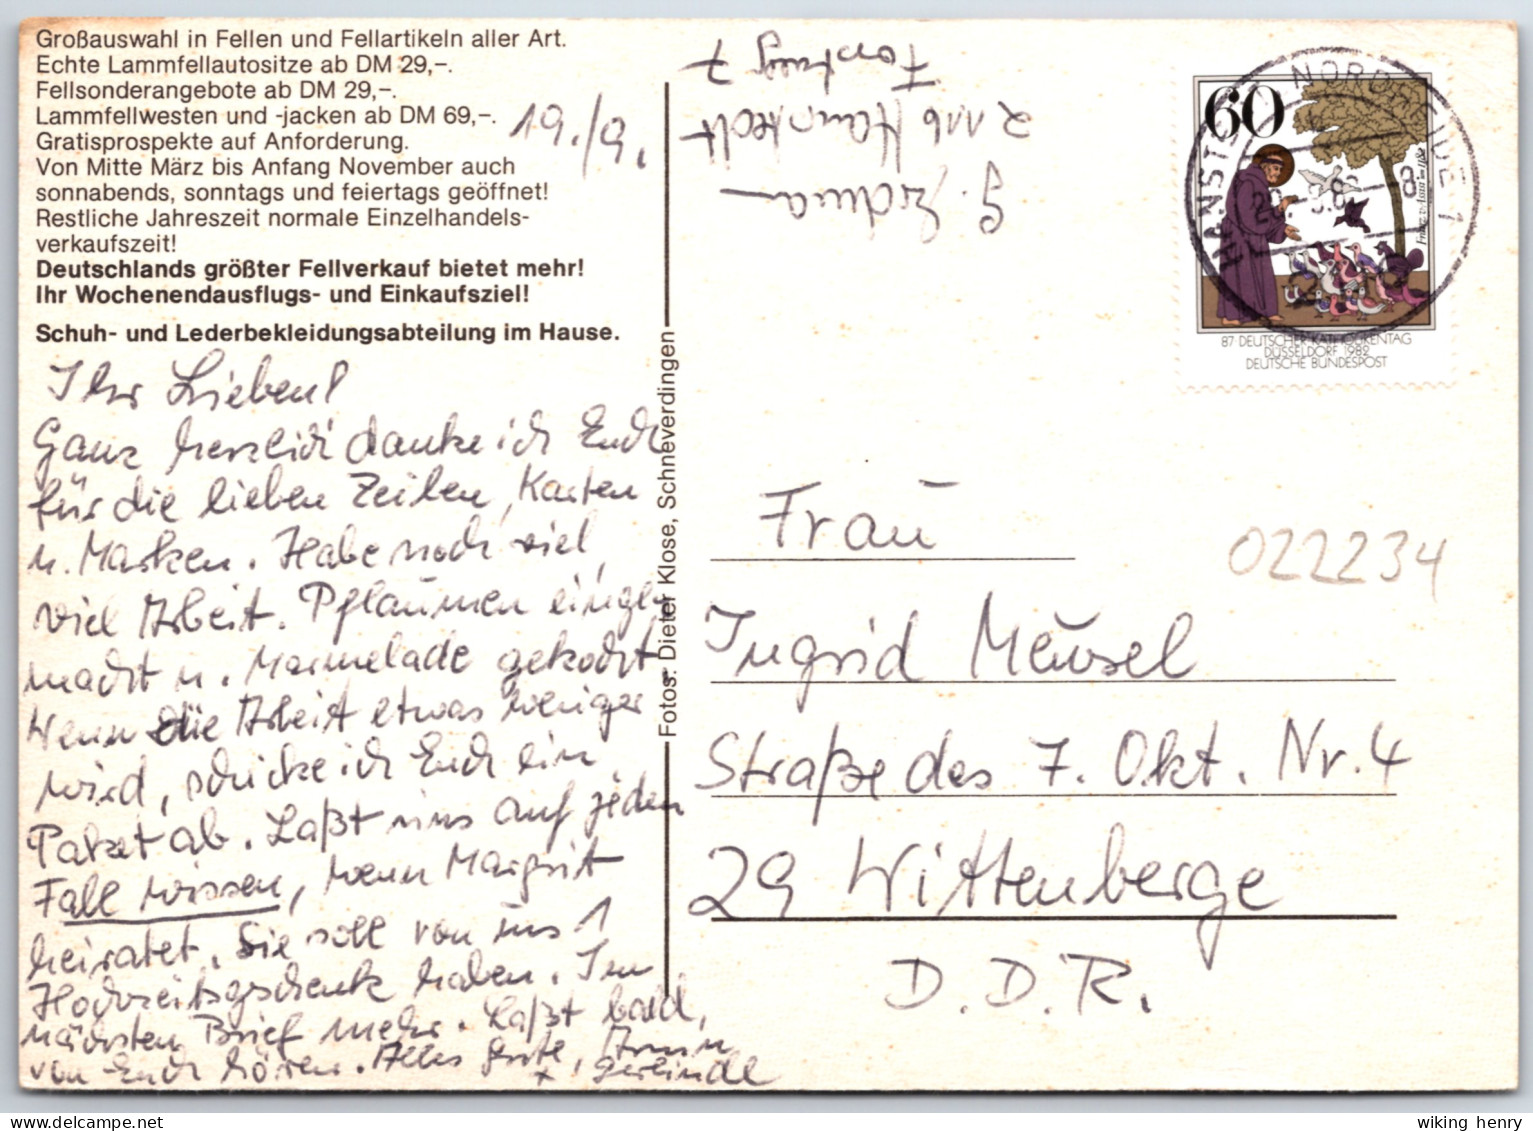 Großauswahl in Fellen und Fellartikeln aller Art.
Echte Lammfellautositze ab DM 29,–.
Fellsonderangebote ab DM 29,–.
Lammfellwesten und -jacken ab DM 69,–.
Gratisprospekte auf Anforderung.
Von Mitte März bis Anfang November auch
sonnabends, sonntags und feiertags geöffnet!
Restliche Jahreszeit normale Einzelhandels-
verkaufszeit!
Deutschlands größter Fellverkauf bietet mehr!
Ihr Wochenendausflugs- und Einkaufsziel!
Schuh- und Lederbekleidungsabteilung im Hause.
19./9.
Ihr Lieben!
Ganz herzlich danke ich Euch
für die lieben Zeilen, Karten
u. Marken. Habe noch viel,
viel Arbeit. Pflaumen einge-
macht u. Marmelade gekocht.
Wenn die Arbeit etwas weniger
wird, schicke ich Euch ein
Paket ab. Laßt uns auf jeden
Fall wissen, wenn Margrit
heiratet. Sie soll von uns 1
Hochzeitsgeschenk haben. Im
nächsten Brief mehr. Laßt bald
von Euch hören. Alles Gute,
+ Gerlinde
Fotos: Dieter Klose, Schneverdingen
G.
2116 Hanstedt
Forstweg 7
60
Franz v. Assisi
87 DEUTSCHER KATHOLIKENTAG
DÜSSELDORF 1982
DEUTSCHE BUNDESPOST
HANSTEDT, NORDHEIDE 1
Frau
Ingrid Meusel
Straße des 7. Okt. Nr. 4
29 Wittenberge
D.D.R.
022234
wiking henry